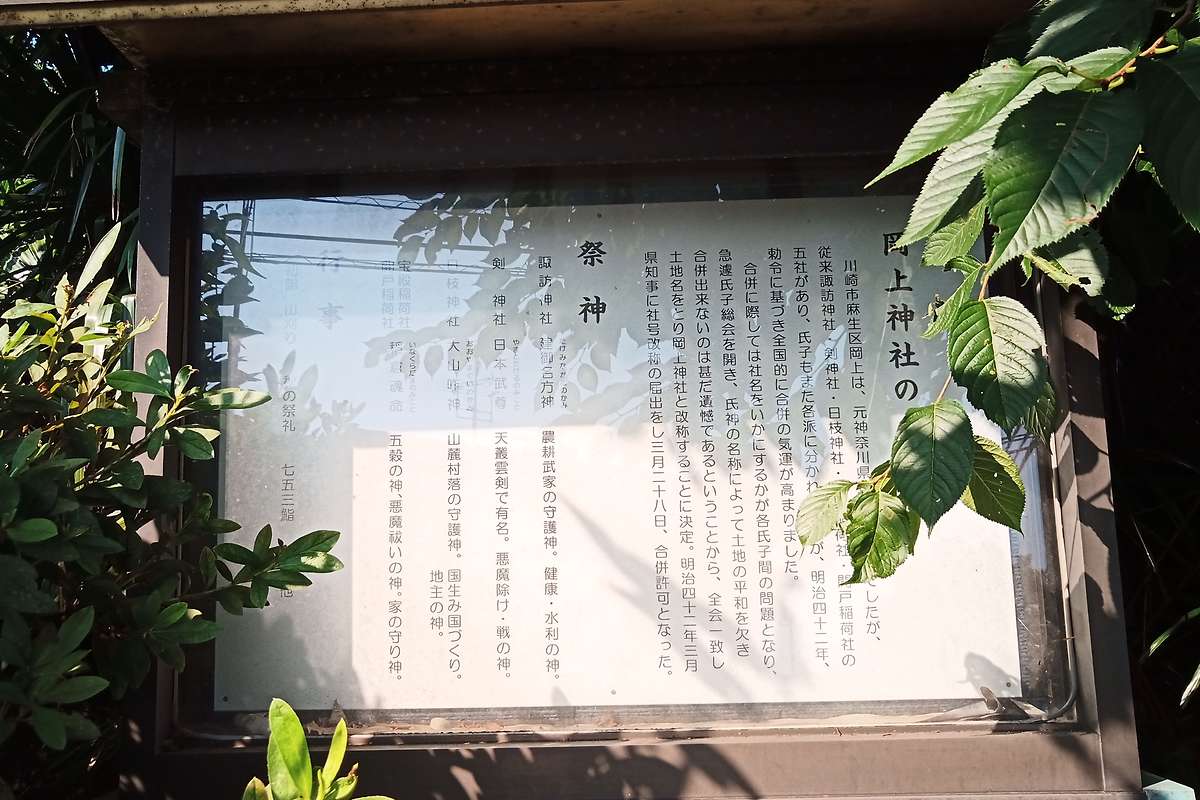 岡上神社の
川崎市麻生区岡上は、元神奈川県 したが、
従来諏訪神社・剣神社・日枝神社・ 荷社・開戸稲荷社の
五社があり、氏子もまた各派に分かれ が、明治四十二年、
勅令に基づき全国的に合併の気運が高まりました。
合併に際しては社名をいかにするかが各氏子間の問題となり、
急遽氏子総会を開き、氏神の名称によって土地の平和を欠き
合併出来ないのは甚だ遺憾であるということから、全会一致し
土地名をとり岡上神社と改称することに決定。明治四十二年三月
県知事に社号改称の届出をし三月二十八日、合併許可となった。
祭神
諏訪神社 建御名方神 農耕武家の守護神。健康・水利の神。
剣神社 日本武尊 天叢雲剣で有名。悪魔除け・戦の神。
日枝神社 大山咋神 山麓村落の守護神。国生み国づくり。
地主の神。
宝殿稲荷社
開戸稲荷社 稲倉魂命 五穀の神、悪魔祓いの神。家の守り神。
行事
山刈り の祭礼 七五三詣 他